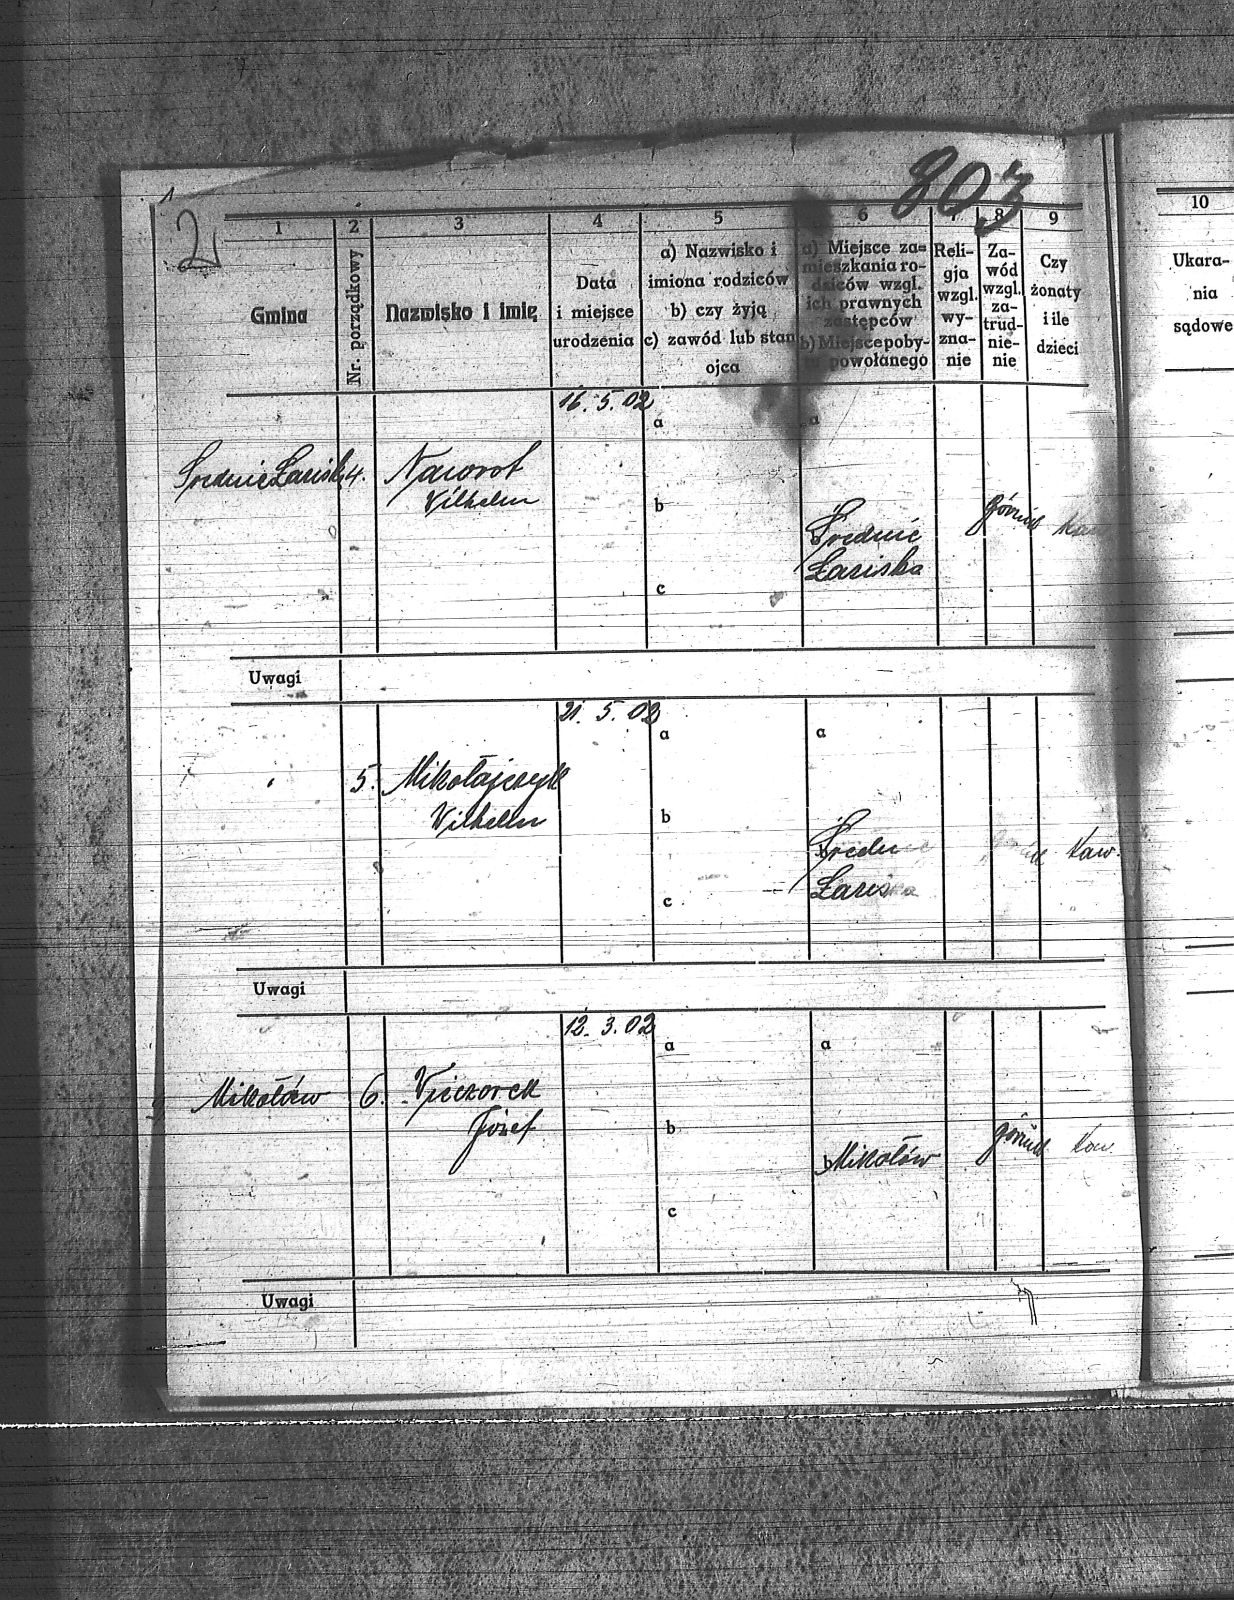 803
2
1 2 3 4 5 6 7 8 9 10
Gmina
Nr. porządkowy
Nazwisko i imię
Data
i miejsce
urodzenia
a) Nazwisko i
imiona rodziców
b) czy żyją
c) zawód lub stan
ojca
a) Miejsce za-
mieszkania ro-
dziców wzgl.
ich prawnych
zastępców
b) Miejsce poby-
tu powołanego
Reli-
gja
wzgl.
wy-
zna-
nie
Za-
wód
wzgl.
za-
trud-
nie-
nie
Czy
żonaty
i ile
dzieci
Ukara-
nia
sądowe
16. 5. 02
a a
Średnie Łaziska 4. Nawrot
Wilhelm
b
Średnie
Łaziska
górnik kaw
c
Uwagi
21. 5. 02
a a
5. Mikołajczyk
Wilhelm
b
Średnie
Łaziska
kaw.
c
Uwagi
12. 3. 02
a a
Mikołów 6. Wieczorek
Józef
b
Mikołów
górnik kaw
c
Uwagi